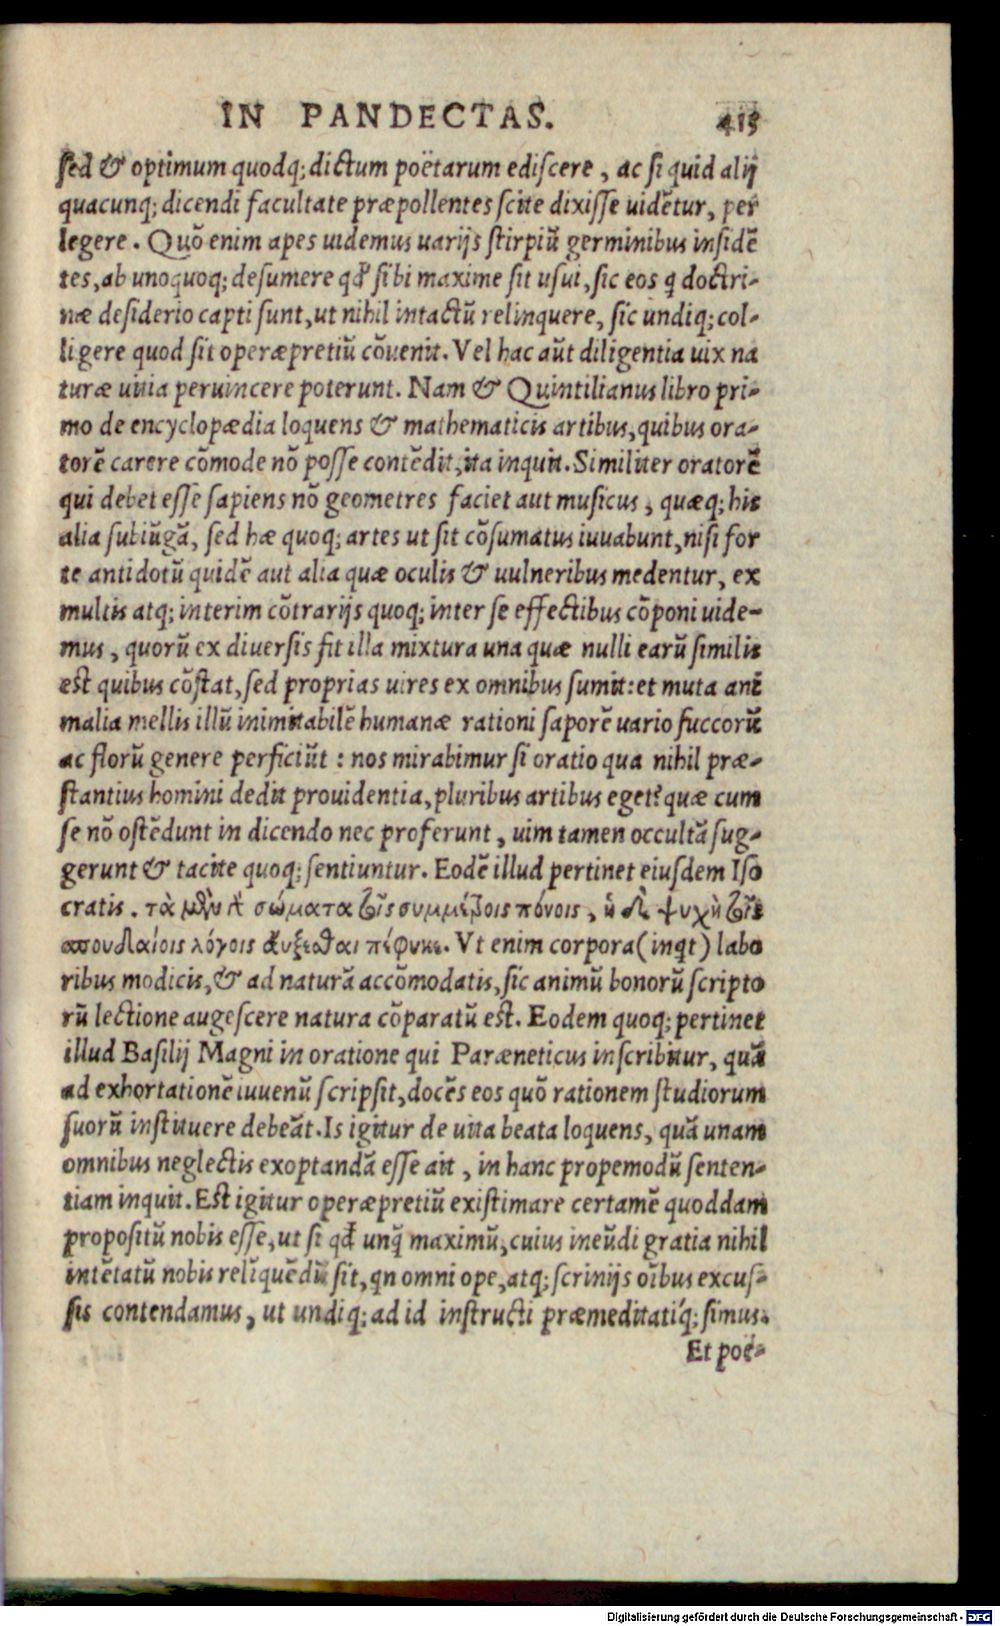 IN PANDECTAS. 415
sed & optimum quodq; dictum poëtarum ediscere, ac si quid alij
quacunq; dicendi facultate præpollentes scite dixisse uidẽtur, per
legere. Quõ enim apes uidemus uarijs stirpiũ germinibus insidẽ
tes, ab unoquoq; desumere qđ sibi maxime sit usui, sic eos q doctri-
næ desiderio capti sunt, ut nihil intactũ relinquere, sic undiq; col-
ligere quod sit operæpretiũ cõuenit. Vel hac aũt diligentia uix na
turæ uitia peruincere poterunt. Nam & Quintilianus libro pri-
mo de encyclopædia loquens & mathematicis artibus, quibus ora-
torẽ carere cõmode nõ posse contẽdit, ita inquit. Similiter oratorẽ
qui debet esse sapiens nõ geometres faciet aut musicus, quæq; his
alia subiũgã, sed hæ quoq; artes ut sit cõsumatus iuuabunt, nisi for
te antidotũ quidẽ aut alia quæ oculis & uulneribus medentur, ex
multis atq; interim cõtrarijs quoq; inter se effectibus cõponi uide-
mus, quorũ ex diuersis fit illa mixtura una quæ nulli earũ similis
est quibus cõstat, sed proprias uires ex omnibus sumit: et muta anĩ
malia mellis illũ inimitabilẽ humanæ rationi saporẽ uario succorũ
ac florũ genere perficiũt : nos mirabimur si oratio qua nihil præ-
stantius homini dedit prouidentia, pluribus artibus eget? quæ cum
se nõ ostẽdunt in dicendo nec proferunt, uim tamen occultã sug-
gerunt & tacite quoq; sentiuntur. Eodẽ illud pertinet eiusdem Iso
cratis. τὰ μὲν γὰ σώματα τοῖς συμμέτροις πόνοις, ἡ δὲ ψυχὴ τοῖς
σπουδαίοις λόγοις αὔξεσθαι πέφυκε. Vt enim corpora (inqt) labo
ribus modicis, & ad naturã accõmodatis, sic animũ bonorũ scripto
rũ lectione augescere natura cõparatũ est. Eodem quoq; pertinet
illud Basilij Magni in oratione qui Paræneticus inscribitur, quã
ad exhortationẽ iuuenũ scripsit, docẽs eos quõ rationem studiorum
suorũ instituere debeãt. Is igitur de uita beata loquens, quã unam
omnibus neglectis exoptandã esse ait, in hanc propemodũ senten-
tiam inquit. Est igitur operæpretiũ existimare certamẽ quoddam
propositũ nobis esse, ut si qđ unq̃ maximũ, cuius ineũdi gratia nihil
intẽtatũ nobis relĩquẽdũ sit, qn omni ope, atq; scrinijs oĩbus excus-
sis contendamus, ut undiq; ad id instructi præmeditatiq́; simus.
Et poë-
Digitalisierung gefördert durch die Deutsche Forschungsgemeinschaft - DFG